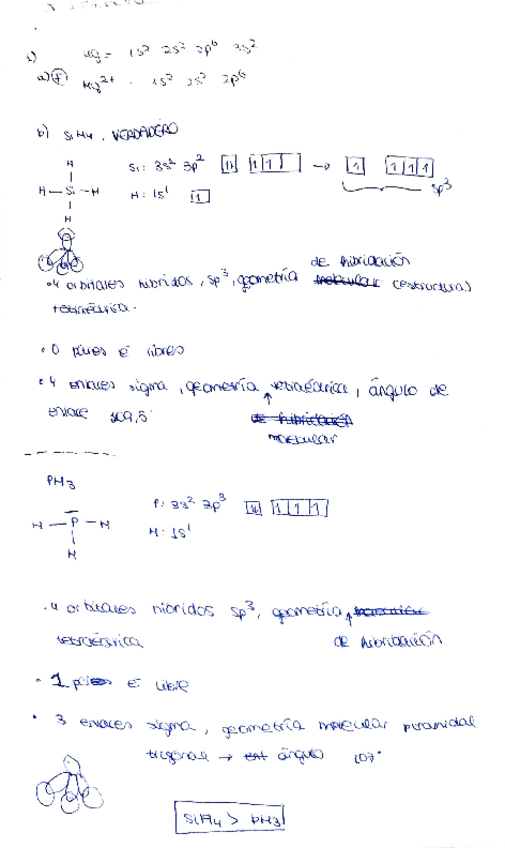 1) Mg = 1s² 2s² 2p⁶ 3s²
a) F Mg²⁺ . 1s² 2s² 2p⁶
b) SiH4. VERDADERO
H
H — Si — H
H
Si: 3s² 3p² [1↓] [1 1 ] → [1] [1 1 1]
H: 1s¹ [1]
sp³
.4 orbitales híbridos, sp³, geometría de hibridación molecular (estructura)
tetraédrica.
.0 pares é libres
.4 enlaces sigma, geometría tetraédrica, ángulo de
enlace 109,5
de hibridación
molecular
PH3
H — P — H
H
P: 3s² 3p³ [1↓] [1 1 1]
H: 1s¹
.4 orbitales híbridos sp³, geometría
tetraédrica de hibridación
. 1 par é libre
. 3 enlaces sigma, geometría molecular piramidal
trigonal → ángulo 107°
SiH4 > PH3